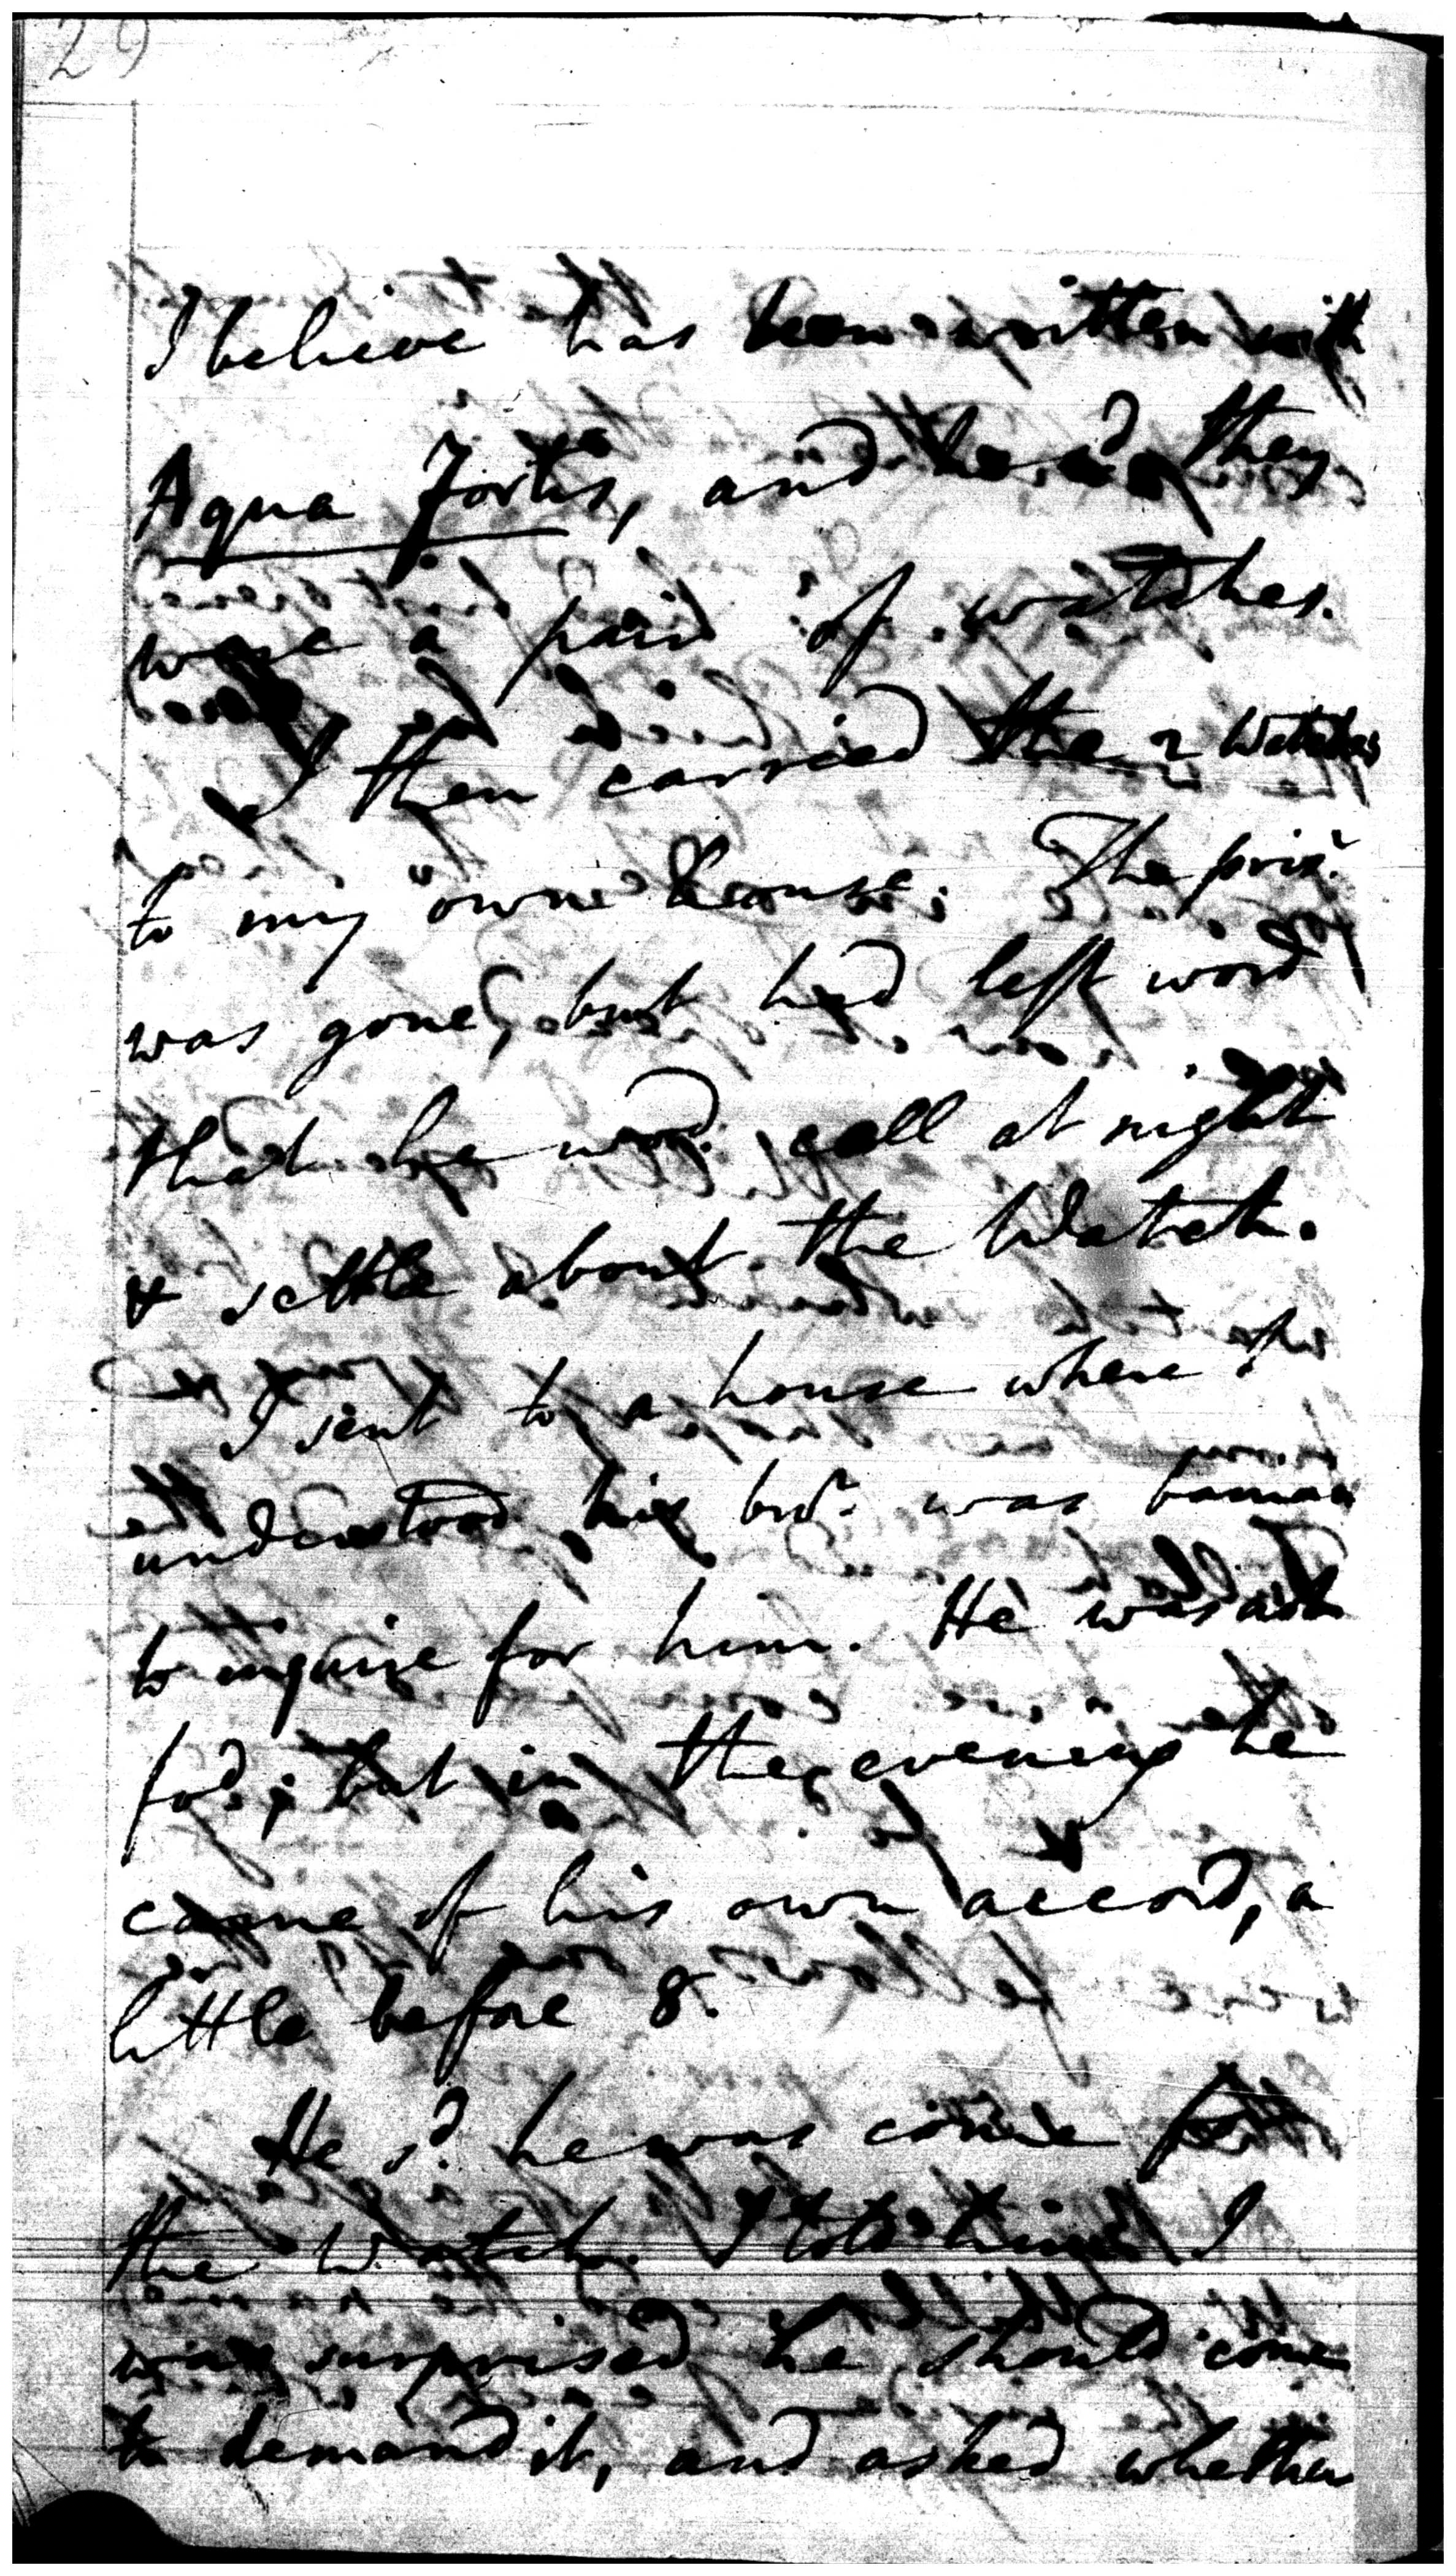 29
I believe has been written with
Aqua Fortis, and he sd. they
were a pair of watches.
I then carried the 2 Watches
to my own house. The prisr.
was gone, but had left word
that he wod. call at night
& settle about the Watch.
I sent to a house where I
understood his bror. was
to inquire for him. He was not
fod; but in the evening he
came of his own accord, a
little before 8.
He sd. he was come for
the Watch. I told him I
was surprised he should come
to demand it, and asked whether